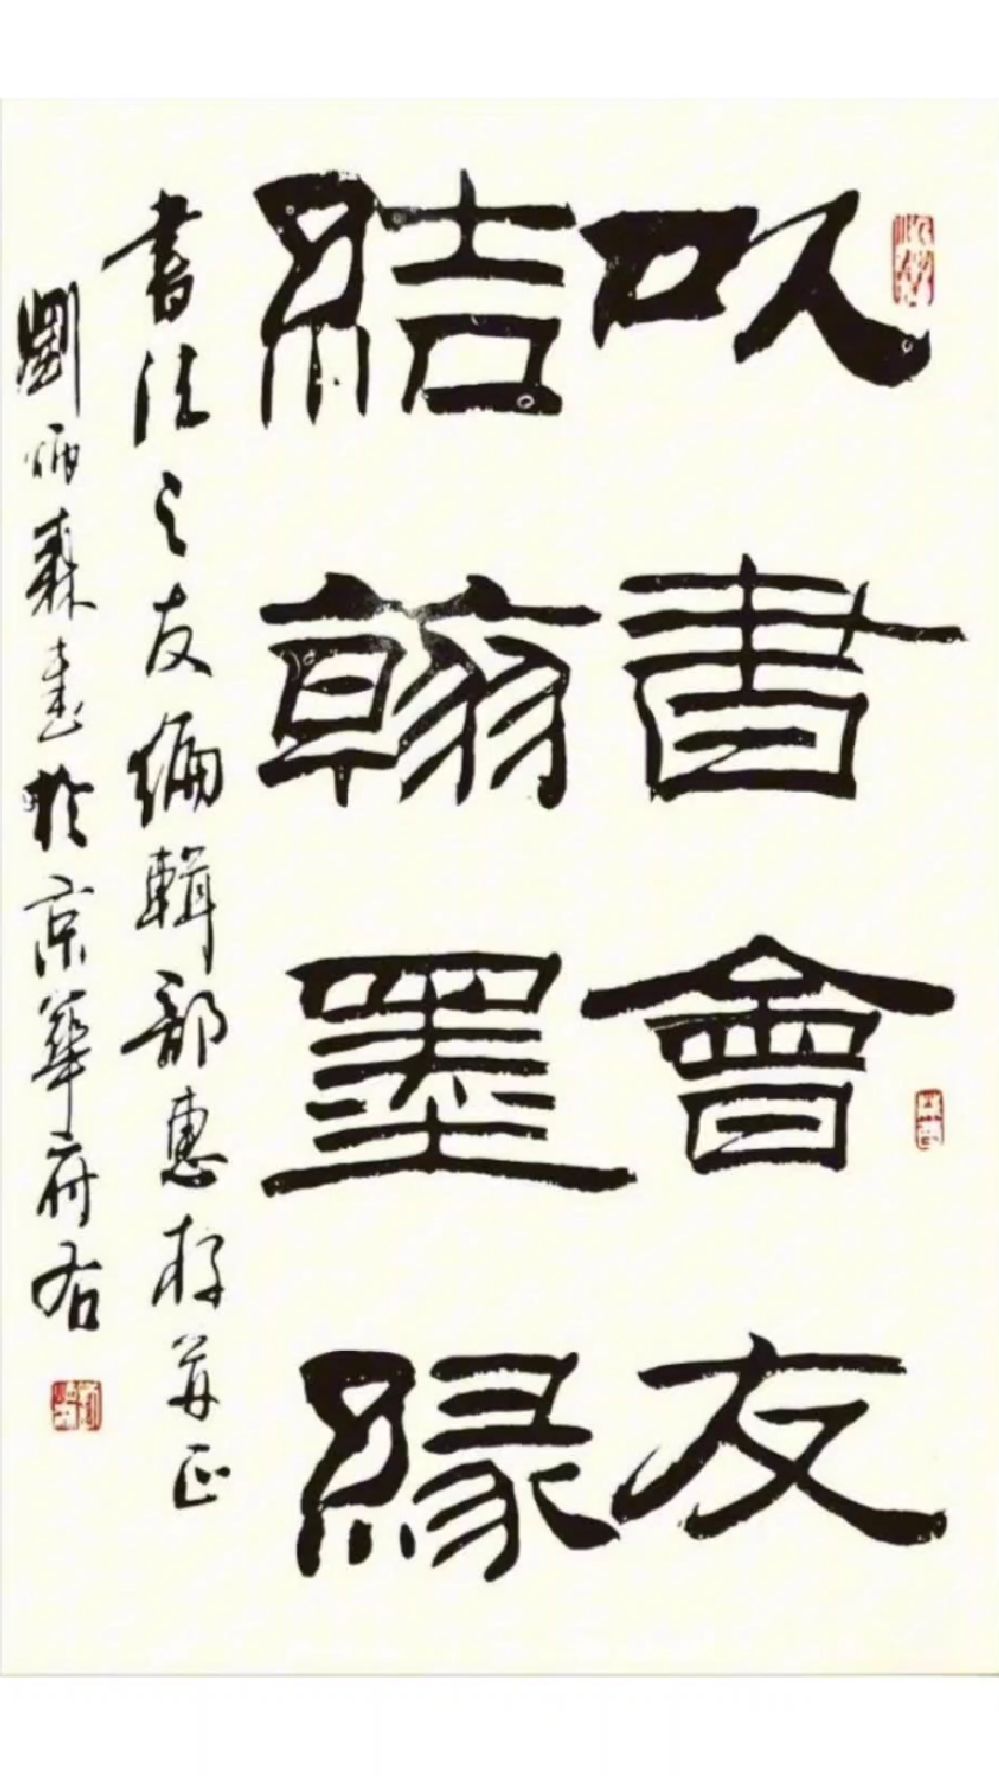 以書會友
結翰墨緣
書法之友編輯部惠存並正
劉炳森書於京華府右